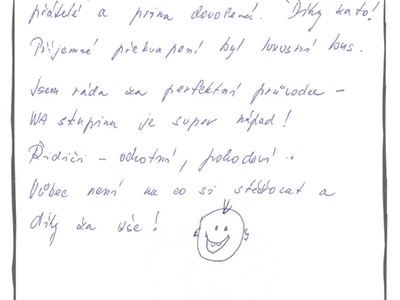 přátelé a prima dovolená. Díky za to!
Příjemné překvapení byl luxusní bus.
Jsem ráda za perfektní průvodce -
WA skupina je super nápad!
Řidiči - ochotní, pohodoví ..
Vůbec není na co si stěžovat a
díky za vše!